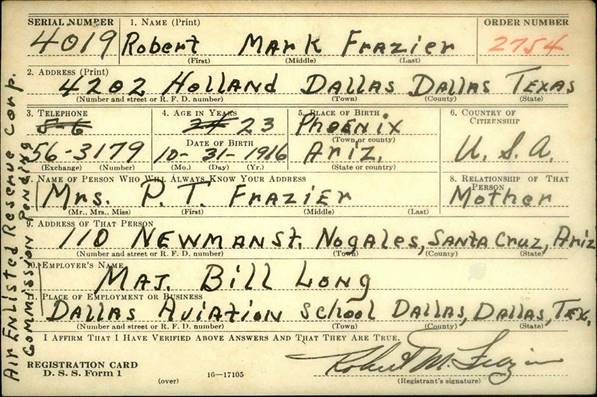 SERIAL NUMBER 1. NAME (Print) ORDER NUMBER
4019 Robert Mark Frazier 2754
(First) (Middle) (Last)
2. ADDRESS (Print)
4202 Holland Dallas Dallas Texas
(Number and street or R. F. D. number) (Town) (County) (State)
3. TELEPHONE 4. AGE IN YEARS 5. PLACE OF BIRTH 6. COUNTRY OF CITIZENSHIP
8-6 24 23 Phoenix
DATE OF BIRTH (Town or county)
56-3179 10-31-1916 Ariz. U.S.A.
(Exchange) (Number) (Mo.) (Day) (Yr.) (State or country)
7. NAME OF PERSON WHO WILL ALWAYS KNOW YOUR ADDRESS 8. RELATIONSHIP OF THAT PERSON
Mrs. P. T. Frazier Mother
(Mr., Mrs., Miss) (First) (Middle) (Last)
9. ADDRESS OF THAT PERSON
110 Newman St. Nogales, Santa Cruz, Ariz
(Number and street or R. F. D. number) (Town) (County) (State)
10. EMPLOYER'S NAME
Maj. Bill Long
11. PLACE OF EMPLOYMENT OR BUSINESS
Dallas Aviation School Dallas, Dallas, Tex.
(Number and street or R. F. D. number) (Town) (County) (State)
I AFFIRM THAT I HAVE VERIFIED ABOVE ANSWERS AND THAT THEY ARE TRUE.
Robert M. Frazier
REGISTRATION CARD
D. S. S. Form 1 (over) 16—17105 (Registrant's signature)
Air Enlisted Reserve Corp.
Commission Pending